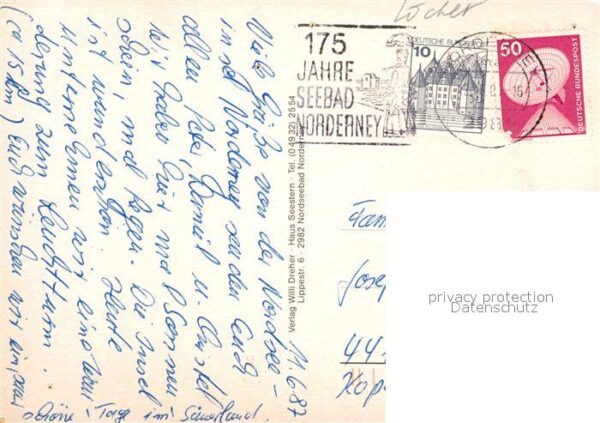 Löcher
175
JAHRE
SEEBAD
NORDERNEY
DEUTSCHE BUNDESPOST
10
50
DEUTSCHE BUNDESPOST
11.6.87
Viele Grüße von der Nordsee-
insel Norderney senden Euch
allen Peter, u.
Wir haben hier mal Sonnen-
schein und Regen. Die Insel
ist Heute
unternehmen wir eine Wan-
derung zum Leuchtturm.
(ca 15 km) Euch wünschen wir ein paar
schöne Tage im Sauerland.
Verlag Willi Dreher · Haus Seestern · Tel. (04932) 2554
Lippestr. 6 · 2982 Nordseebad Norderney
Fam
Josep
44
Kop
privacy protection
Datenschutz